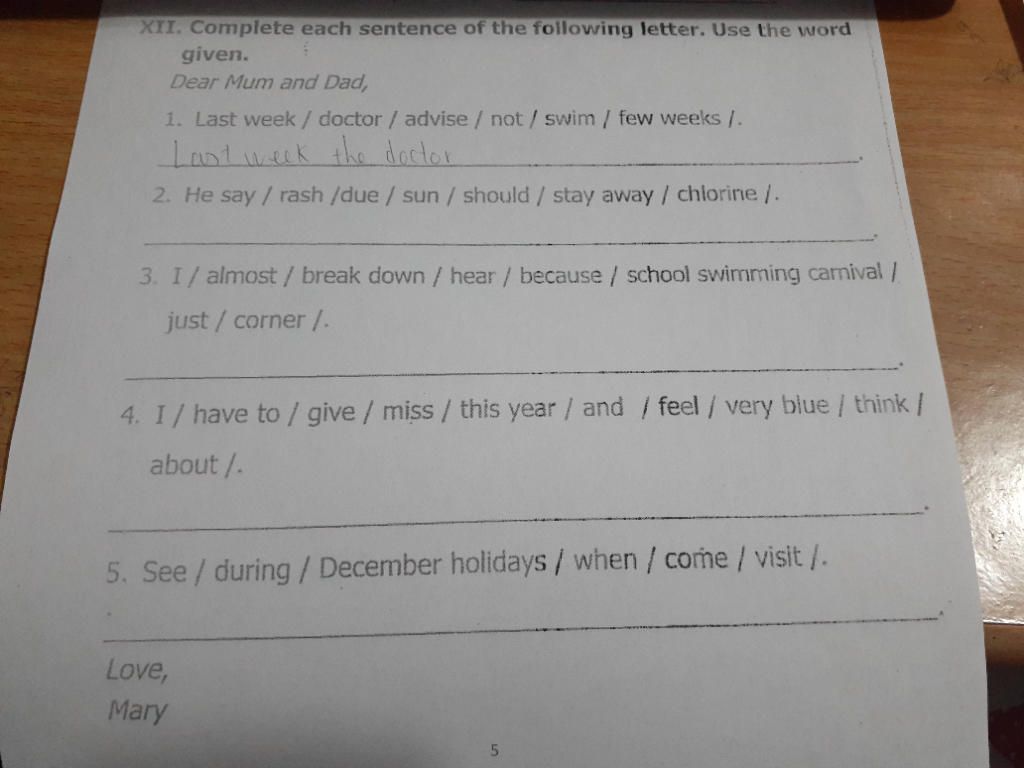 XII. Complete each sentence of the following letter. Use the word
given.
Dear Mum and Dad,
1. Last week / doctor / advise / not / swim / few weeks /.
Last week the doctor
2. He say / rash /due / sun / should / stay away / chlorine /.
3. I / almost / break down / hear / because / school swimming carnival /
just / corner /.
4. I / have to / give / miss / this year / and / feel / very blue / think /
about /.
5. See / during / December holidays / when / come / visit /.
Love,
Mary
5